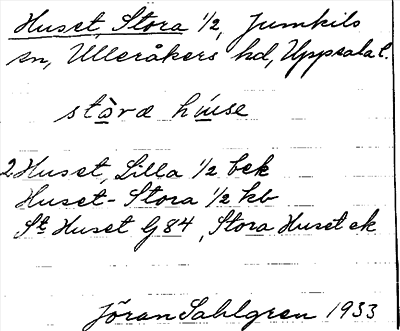 Huset, Stora 1/2, Jumkils
sn, Ulleråkers hd, Uppsala l.
stòra húse
2 Huset, Lilla 1/2 bek
Huset - Stora 1/2 kb
St Huset G 84, Stora Huset ek
Jöran Sahlgren 1933